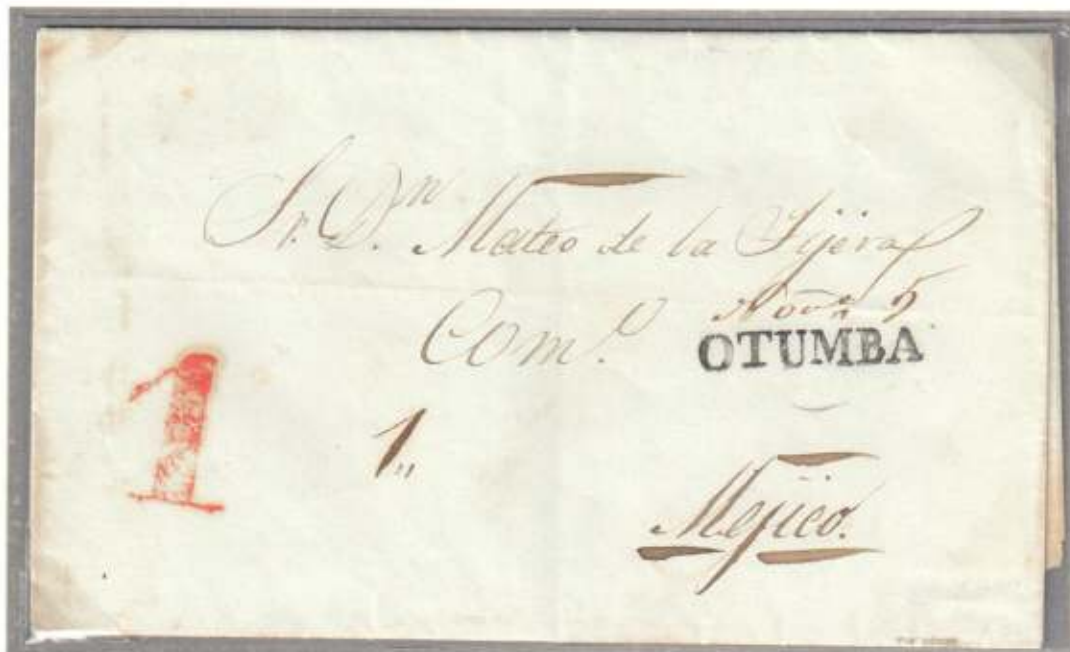 Sr. Dn. Mateo de la Tijera
Com.o
OTUMBA
1
1"
Mejico.